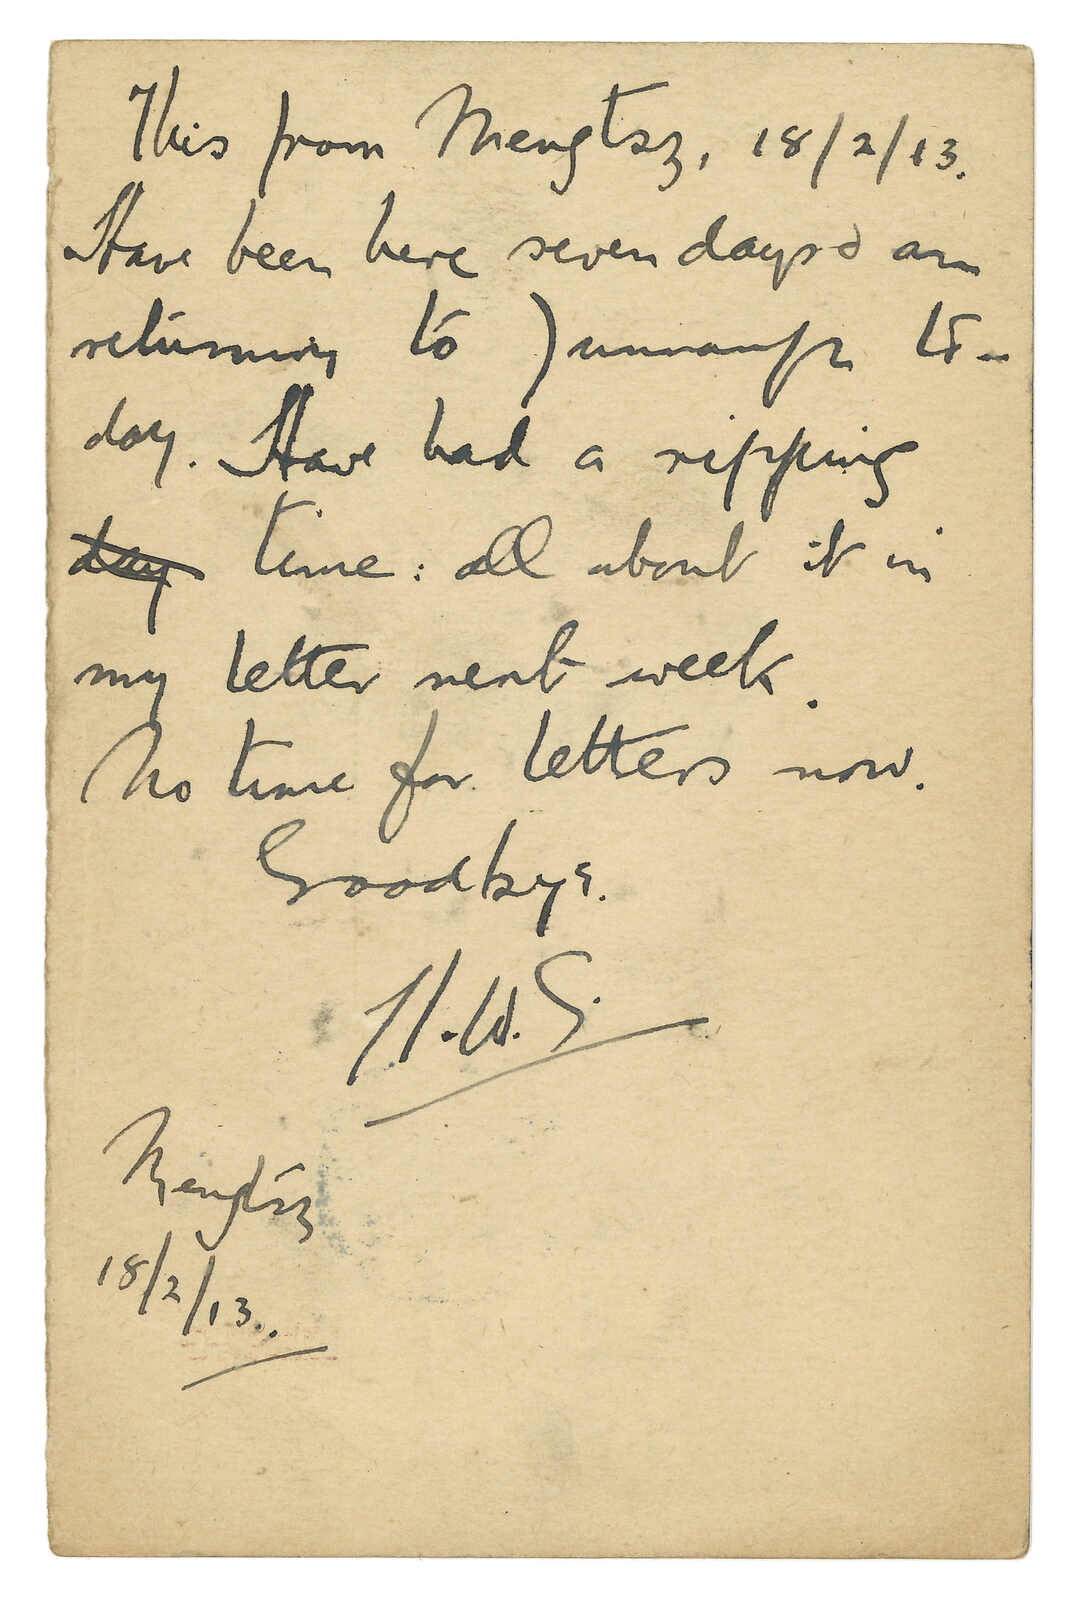 This from Mengtsz, 18/2/13.
Have been here seven days & am
returning to Yunnanfu to-
day. Have had a ripping
day time: all about it in
my letter next week.
No time for letters now.
Goodbye.
H.W.S.
Mengtsz
18/2/13.